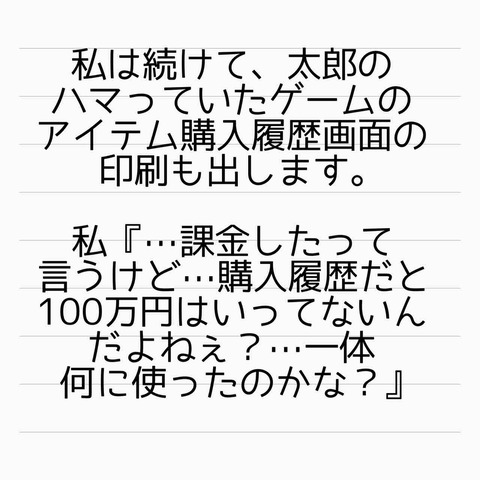 私は続けて、太郎の
ハマっていたゲームの
アイテム購入履歴画面の
印刷も出します。
私『…課金したって
言うけど…購入履歴だと
100万円はいってないん
だよねぇ？…一体
何に使ったのかな？』